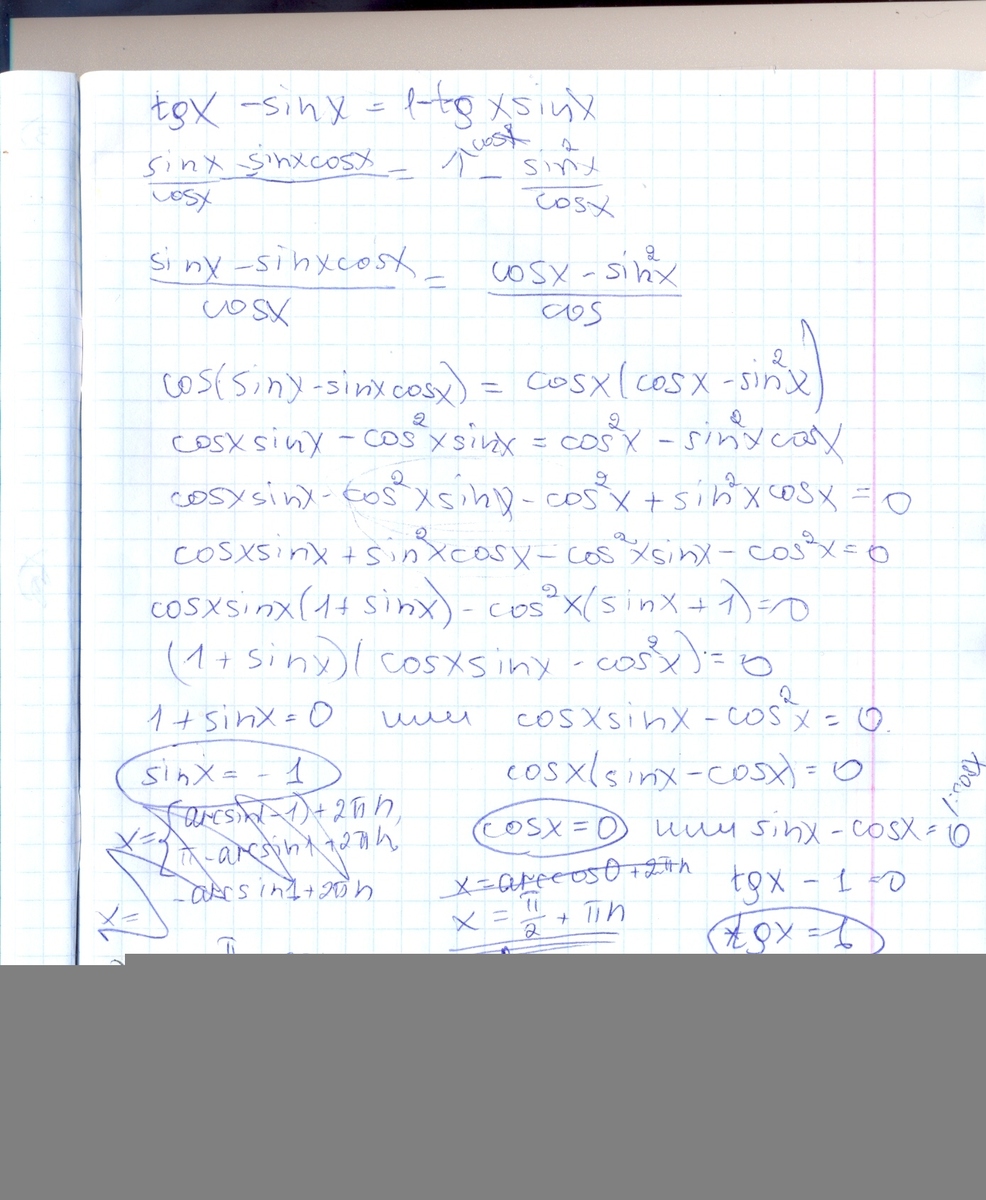 tgx - sinx = 1 - tgxsinx
sinx - sinxcosx / cosx = 1 cosx - sin²x / cosx
sinx - sinxcosx / cosx = cosx - sin²x / cos
cos(sinx - sinxcosx) = cosx(cosx - sin²x)
cosxsinx - cos²xsinx = cos²x - sin²xcosx
cosxsinx - cos²xsinx - cos²x + sin²xcosx = 0
cosxsinx + sin²xcosx - cos²xsinx - cos²x = 0
cosxsinx(1 + sinx) - cos²x(sinx + 1) = 0
(1 + sinx)(cosxsinx - cos²x) = 0
1 + sinx = 0 или cosxsinx - cos²x = 0.
sinx = -1 cosx(sinx - cosx) = 0
cosx = 0 или sinx - cosx = 0 /:cosx
x = { arcsin(-1) + 2πn,
π - arcsin1 + 2πn
x = - arcsin1 + 2πn
x = arccos0 + 2πn tgx - 1 = 0
x = π/2 + πn tgx = 1